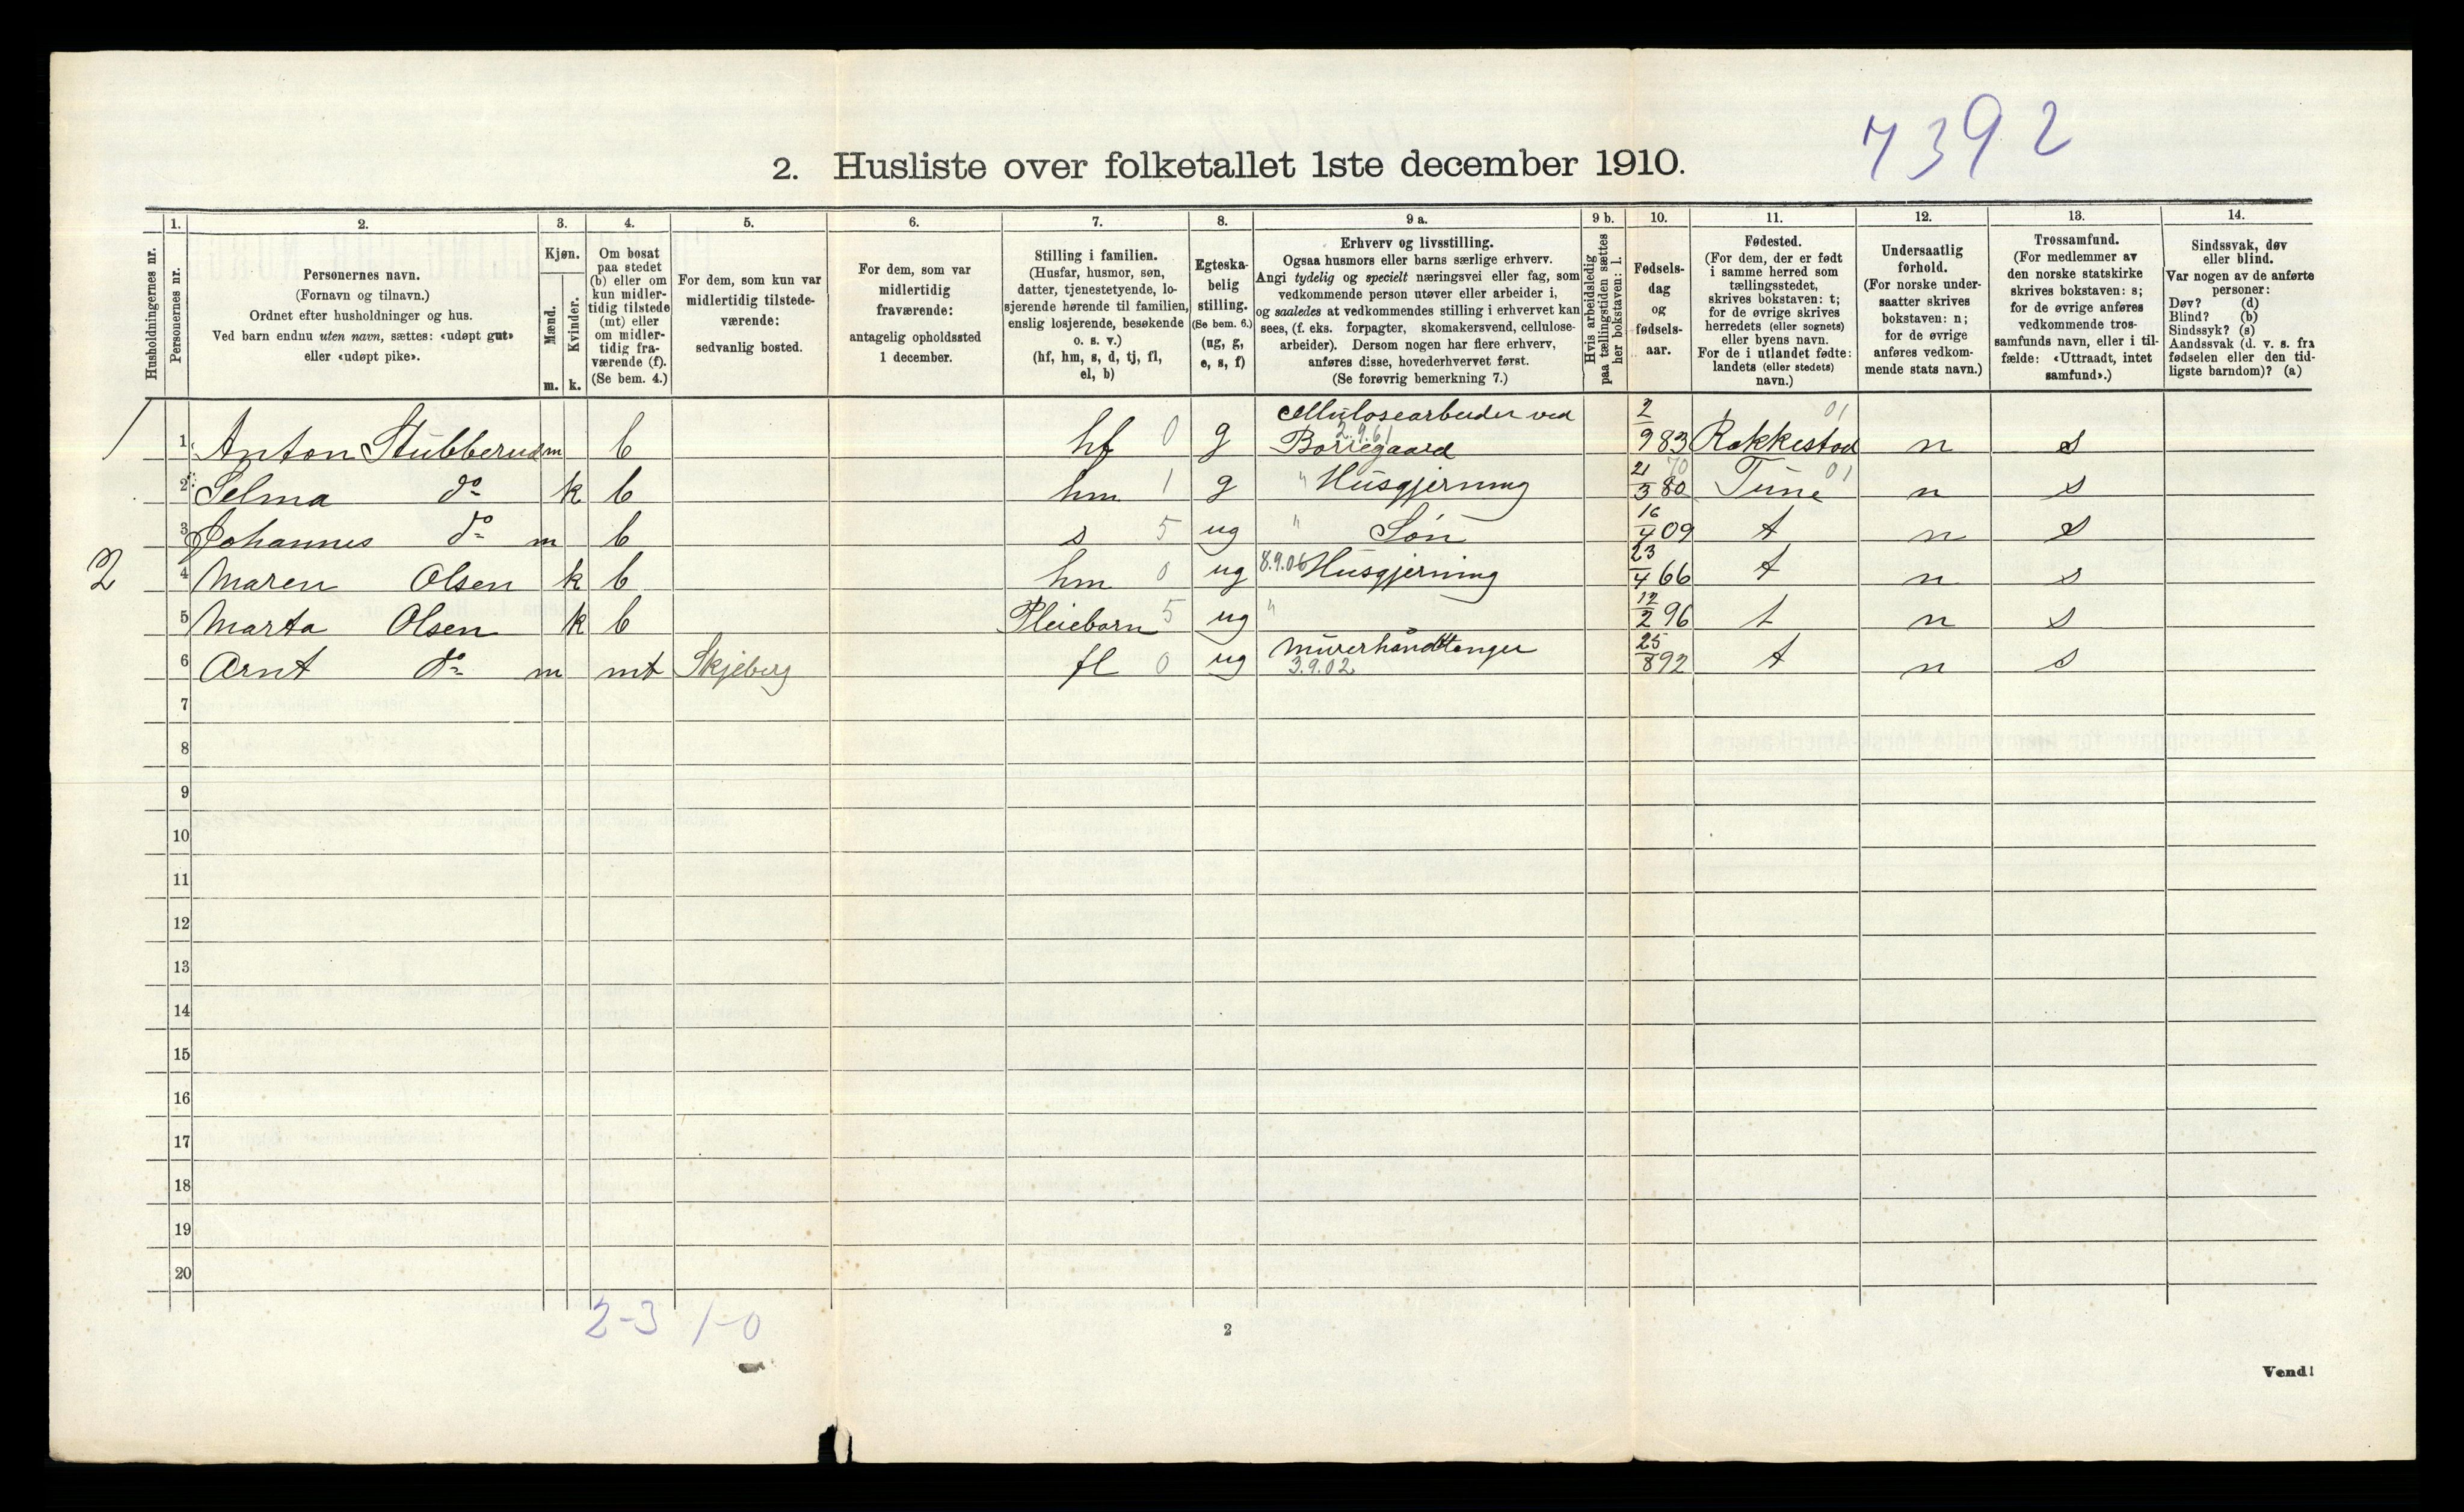 7392
2. Husliste over folketallet 1ste december 1910.
Husholdningernes nr.
1.
Personernes nr.
2.
Personernes navn.
(Fornavn og tilnavn.)
Ordnet efter husholdninger og hus.
Ved barn endnu uten navn, sættes: «udøpt gut»
eller «udøpt pike».
3.
Kjøn.
Mænd.
Kvinder.
m. k.
4.
Om bosat
paa stedet
(b) eller om
kun midler-
tidig tilstede
(mt) eller
om midler-
tidig fra-
værende (f).
(Se bem. 4.)
5.
For dem, som kun var
midlertidig tilstede-
værende:
sedvanlig bosted.
6.
For dem, som var
midlertidig
fraværende:
antagelig opholdssted
1 december.
7.
Stilling i familien.
(Husfar, husmor, søn,
datter, tjenestetyende, lo-
sjerende hørende til familien,
enslig losjerende, besøkende
o. s. v.)
(hf, hm, s, d, tj, fl,
el, b)
8.
Egteska-
belig
stilling.
(Se bem. 6.)
(ug, g,
e, s, f)
9 a.
Erhverv og livsstilling.
Ogsaa husmors eller barns særlige erhverv.
Angi tydelig og specielt næringsvei eller fag, som
vedkommende person utøver eller arbeider i,
og saaledes at vedkommendes stilling i erhvervet kan
sees, (f. eks. forpagter, skomakersvend, cellulose-
arbeider). Dersom nogen har flere erhverv,
anføres disse, hovederhvervet først.
(Se forøvrig bemerkning 7.)
9 b.
Hvis arbeidsledig
paa tællingstiden sættes
her bokstaven: l.
10.
Fødsels-
dag
og
fødsels-
aar.
11.
Fødested.
(For dem, der er født
i samme herred som
tællingsstedet,
skrives bokstaven: t;
for de øvrige skrives
herredets (eller sognets)
eller byens navn.
For de i utlandet fødte:
landets (eller stedets)
navn.)
12.
Undersaatlig
forhold.
(For norske under-
saatter skrives
bokstaven: n;
for de øvrige
anføres vedkom-
mende stats navn.)
13.
Trossamfund.
(For medlemmer av
den norske statskirke
skrives bokstaven: s;
for de øvrige anføres
vedkommende tros-
samfunds navn, eller i til-
fælde: «Uttraadt, intet
samfund».)
14.
Sindssvak, døv
eller blind.
Var nogen av de anførte
personer:
Døv? (d)
Blind? (b)
Sindssyk? (s)
Aandssvak (d. v. s. fra
fødselen eller den tid-
ligste barndom)? (a)
cellulosearbeider ved 2 01
1 1 Anton Stubberud m b hf 0 g 2.9.61 Borregaard 9 83 Rakkestad n s
2 Selma do k b hm 1 g " Husgjerning 21/3 80 70 Tune 01 n s
3 Johannes do m b s 5 ug " Søn 16/4 09 t n s
2 4 Maren Olsen k b hm 0 ug 8.9.06 Husgjerning 23/4 66 t n s
5 Marta Olsen k b Pleiebarn 5 ug " 12/2 96 t n s
6 Arnt do m mt Skjeberg fl 0 ug Murerhåndtanger 3.9.02 25/8 92 t n s
7
8
9
10
11
12
13
14
15
16
17
18
19
20
2-3 1-0
2
Vend!